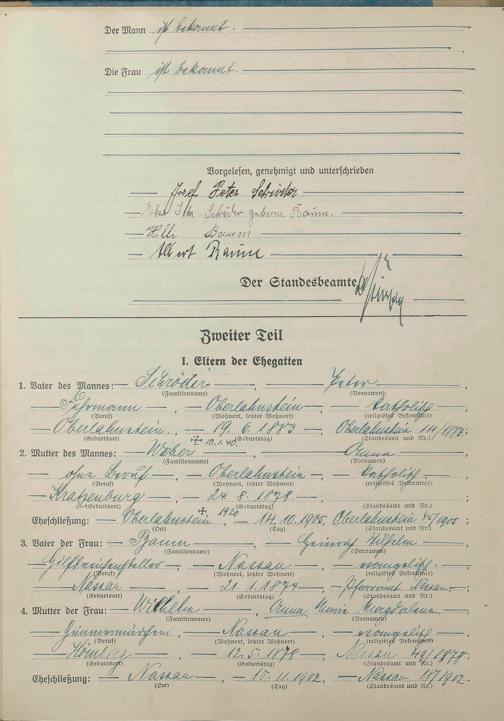 Der Mann ist bekannt.
Die Frau ist bekannt.
Vorgelesen, genehmigt und unterschrieben
Josef Peter Schröder
Schröder geborene Baum.
Willi Baum
Albert Baum
Der Standesbeamte
Zweiter Teil
I. Eltern der Ehegatten
1. Vater des Mannes: Schröder, Peter,
(Familienname) (Vornamen)
Fuhrmann, Oberlahnstein, katholisch
(Beruf) (Wohnort, letzter Wohnort) (religiöses Bekenntnis)
Oberlahnstein, 19.6.1883, Oberlahnstein 111/1883;
(Geburtsort) (Geburtstag) (Standesamt und Nr.)
+ 10.1.40.
2. Mutter des Mannes: Weber, Anna,
(Familienname) (Vornamen)
ohne Beruf, Oberlahnstein, katholisch
(Beruf) (Wohnort, letzter Wohnort) (religiöses Bekenntnis)
Kratzenburg, 24.8.1878.
(Geburtsort) (Geburtstag) (Standesamt und Nr.)
+ 1920
Eheschließung: Oberlahnstein, 14.10.1905, Oberlahnstein /1905;
(Ort) (Tag) (Standesamt und Nr.)
3. Vater der Frau: Baum, Heinrich Wilhelm
(Familienname) (Vornamen)
Nassau, evangelisch.
(Beruf) (Wohnort, letzter Wohnort) (religiöses Bekenntnis)
Nassau, .1.1874, Pfarramt Nassau.
(Geburtsort) (Geburtstag) (Standesamt und Nr.)
4. Mutter der Frau: Wilhelm, Anna Maria Magdalena.
(Familienname) (Vornamen)
Nassau, evangelisch
(Beruf) (Wohnort, letzter Wohnort) (religiöses Bekenntnis)
Homberg, 12.5.1878, Nassau 49/1878;
(Geburtsort) (Geburtstag) (Standesamt und Nr.)
Eheschließung: Nassau, 15.11.1902, Nassau /1902.
(Ort) (Tag) (Standesamt und Nr.)